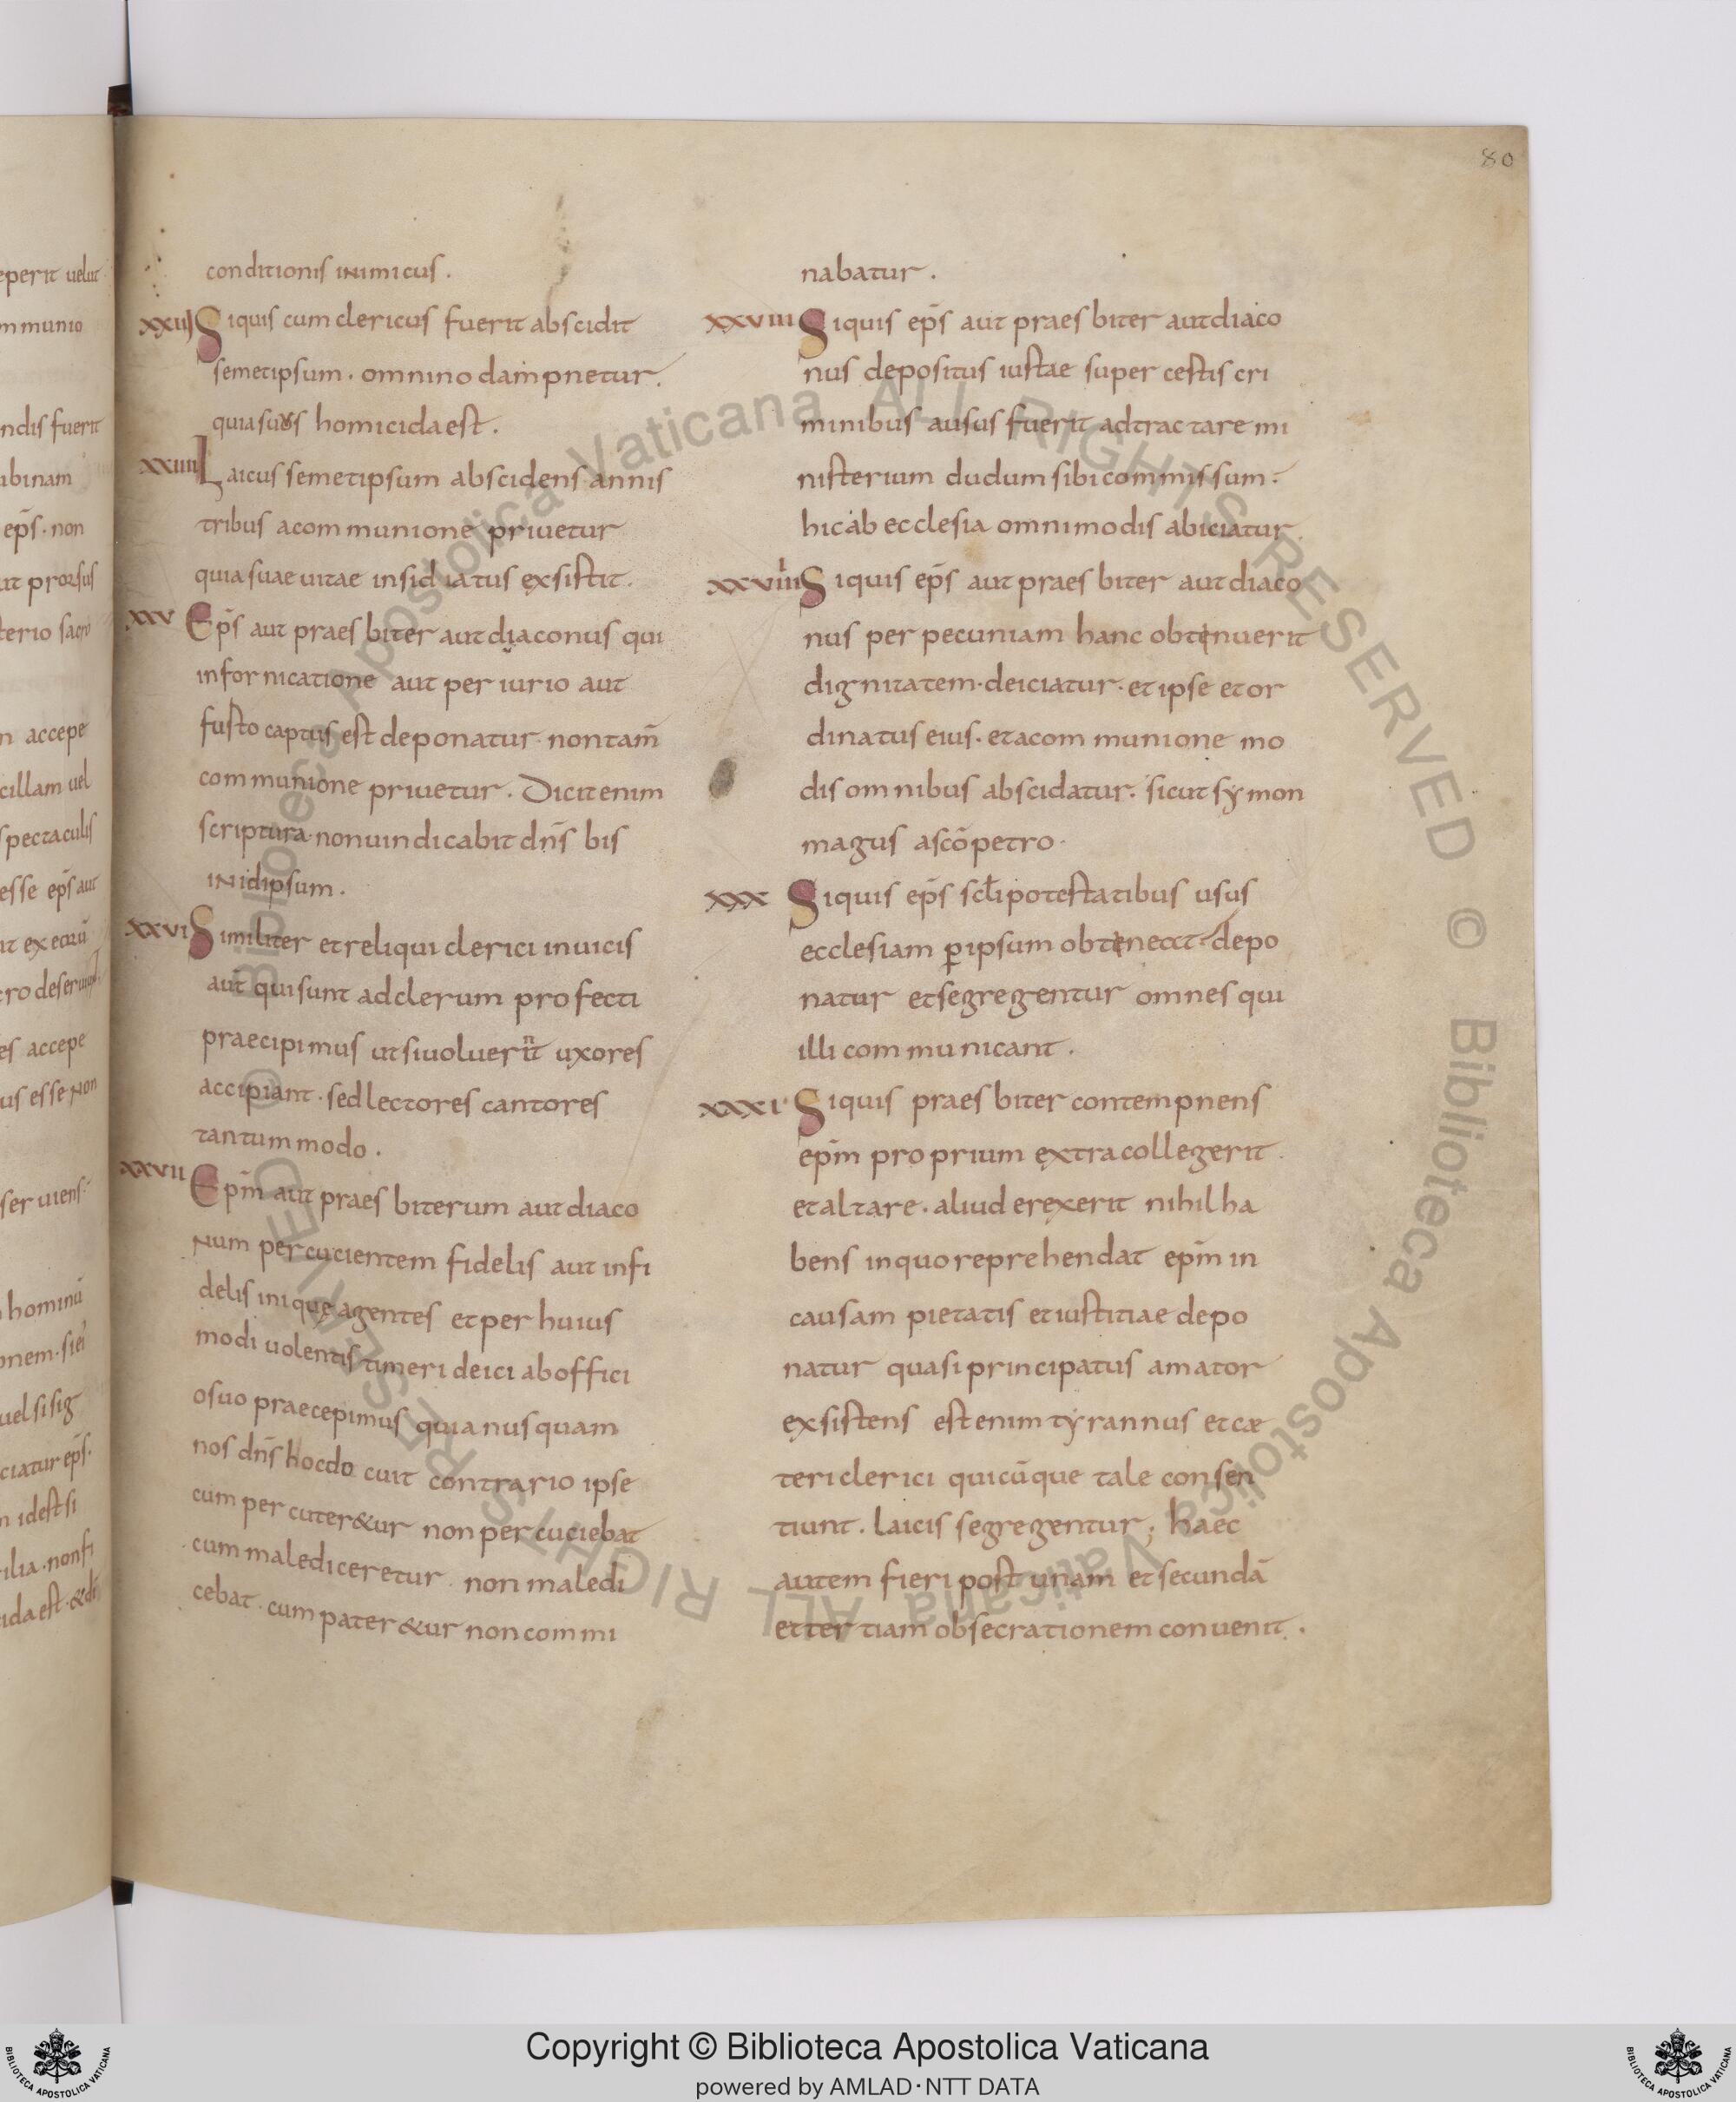 80
conditionis inimicus.
XXIIJ Siquis cum clericus fuerit abscidit
semetipsum. omnino dampnetur.
quia suus homicida est.
XXIIII Laicus semetipsum abscidens annis
tribus acommunione priuetur
quia suae uitae insidiatus exsistit.
XXV Ep̄s aut praesbiter aut diaconus qui
infornicatione aut periurio aut
fusto captus est deponatur. non tam̄
communione priuetur. Dicit enim
scriptura. non uindicabit dn̄s bis
inidipsum.
XXVI Similiter et reliqui clerici inuicis
aut qui sunt adclerum profecti
praecipimus ut si uoluerint uxores
accipiant. sed lectores cantores
tantummodo.
XXVII Ep̄m aut praesbiterum aut diaco
num percucientem fidelis aut infi
delis inique agentes et per huius
modi uolentis timeri deici ab offici
o suo praecepimus quia nusquam
nos dn̄s hoc docuit contrario ipse
cum percuter&ur non percuciebat
cum malediceretur non maledi
cebat. cum pater&ur non commi
nabatur.
XXVIII Siquis ep̄s aut praesbiter aut diaco
nus depositus iustae super cestis cri
minibus ausus fuerit adtractare mi
nisterium dudum sibi commissum.
hic ab ecclesia omnimodis abiciatur.
XXVIIII Siquis ep̄s aut praesbiter aut diaco
nus per pecuniam hanc obtenuerit
dignitatem. deiciatur. et ipse et or
dinatus eius. et acommunione mo
dis omnibus abscidatur. sicut symon
magus a sc̄o petro.
XXX Siquis ep̄s scl̄i potestatibus usus
ecclesiam ꝑ ipsum obteneat. depo
natur et segregentur omnes qui
illi communicant.
XXXI Siquis praesbiter contempnens
ep̄m proprium extra collegerit.
et altare. aliud erexerit nihil ha
bens in quo reprehendat ep̄m in
causam pietatis et iustitiae depo
natur quasi principatus amator
exsistens est enim tyrannus et cæ
teri clerici quicūque tale consen
tiunt. laicis segregentur; haec
autem fieri post unam et secundā
et tertiam obsecrationem conuenit.
Copyright © Biblioteca Apostolica Vaticana
powered by AMLAD·NTT DATA